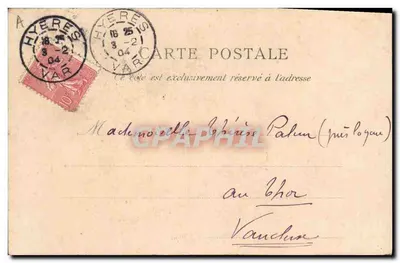 A
HYÈRES
18 25
3 - 2
04
VAR
HYÈRES
18 25
3 - 2
04
VAR
CARTE POSTALE
Ce côté est exclusivement réservé à l'adresse
Mademoiselle Thérèse
CPAPHIL
au Thor
Vaucluse